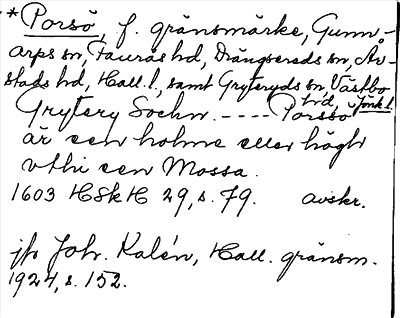 * Porsö, f. gränsmärke, Gunn-
arps sn, Faurås hd, Drängsereds sn, År-
stads hd, Hall. l., samt Gryteryds sn, Västbo
hd, Jönk. l.
Grytery Sochn. ---- Porssö
är een holme eller högt
vthi een Mossa.
1603 HSkH 29, s. 79. avskr.
jfr Joh. Kalén, Hall. gränsm.
1924, s. 152.